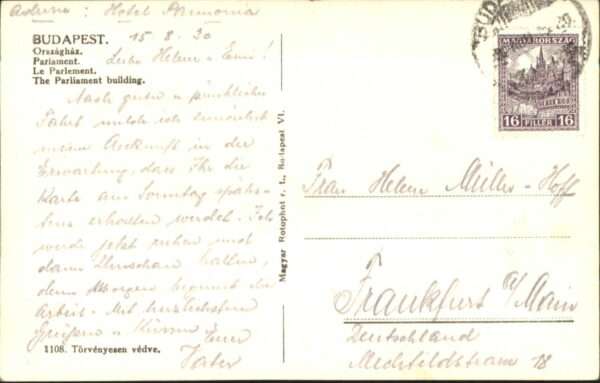 Adresse: Hotel Pannonia
15-8-30
BUDAPEST.
Országház.
Pariament.
Le Parlement.
The Parliament building.
Liebe Helene u Erni!
Nach guter u pünktlicher
Fahrt melde ich
meine Ankunft in der
Erwartung, dass Ihr die
Karte am Sonntag späte-
stens erhalten werdet. Ich
werde jetzt ruhen und
dann Umschau halten,
denn Morgen beginnt die
Arbeit. Mit herzlichsten
Grüßen u Küssen Euer
Vater
1108. Törvényesen védve.
Magyar Rotophot r. t., Budapest VI.
BUDA
MAGYARORSZÁG
16 FILLÉR 16
Frau Helene Müller-Hoff
Frankfurt a/Main
Deutschland
18